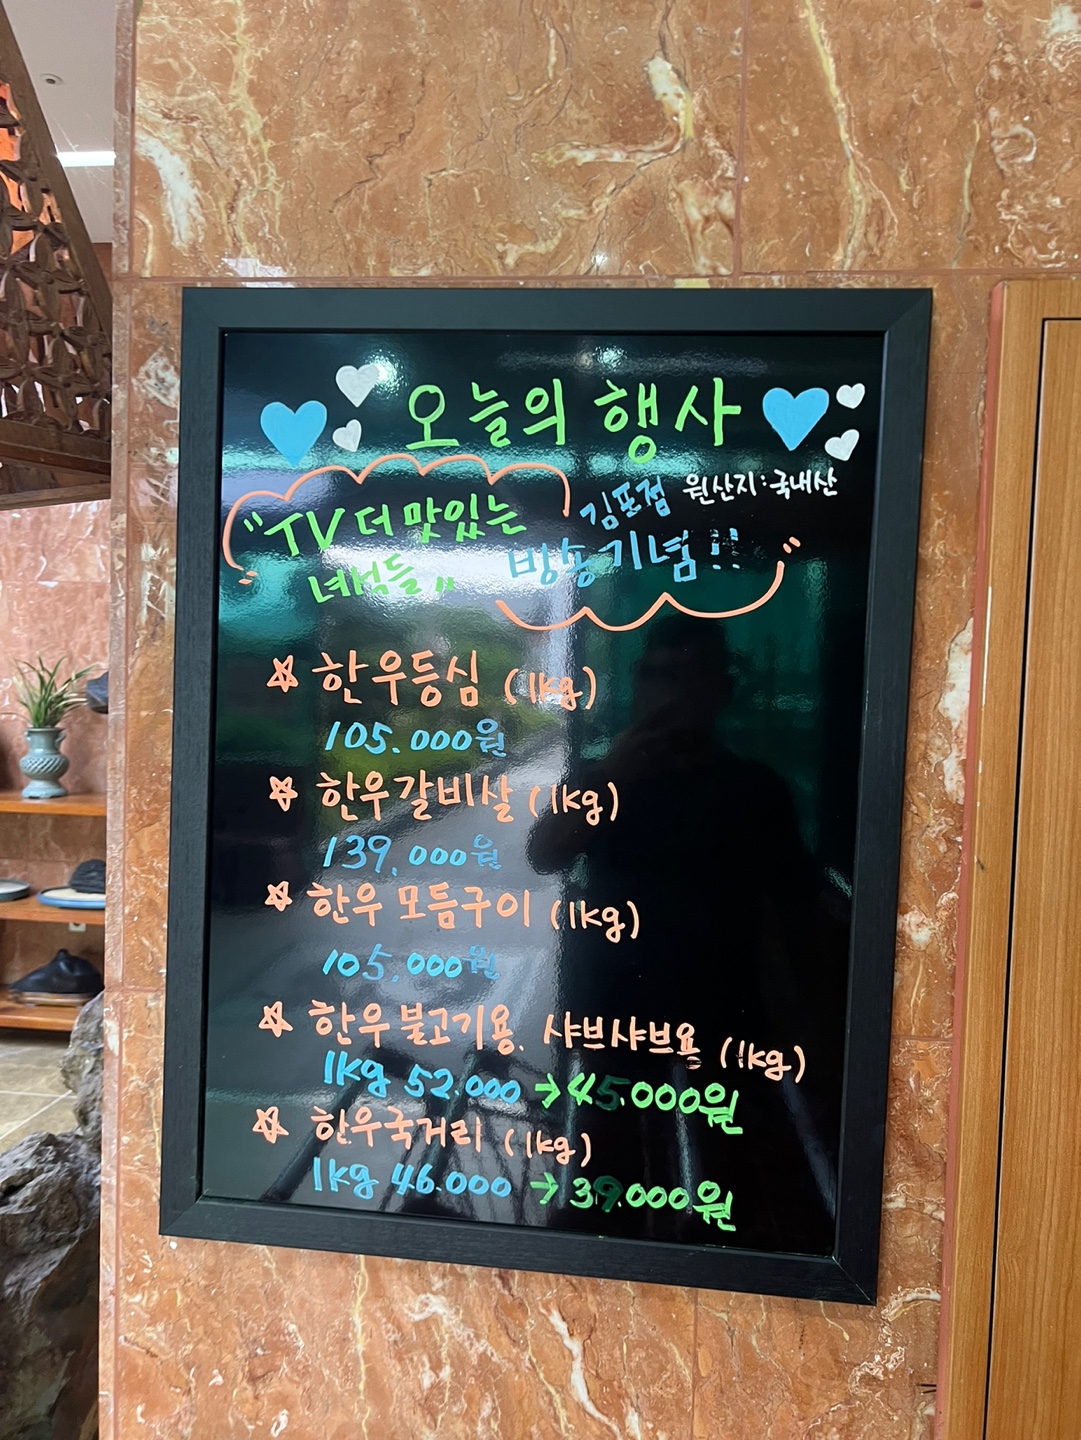 오늘의 행사
원산지:국내산
"TV 더 맛있는
녀석들" 김포점
방송기념!!"
☆ 한우등심 (1kg)
105.000원
☆ 한우갈비살 (1kg)
139,000원
☆ 한우 모듬구이 (1kg)
105,000원
☆ 한우 불고기용. 샤브샤브용 (1kg)
1kg 52.000 → 45.000원
☆ 한우국거리 (1kg)
1kg 46.000 → 39.000원